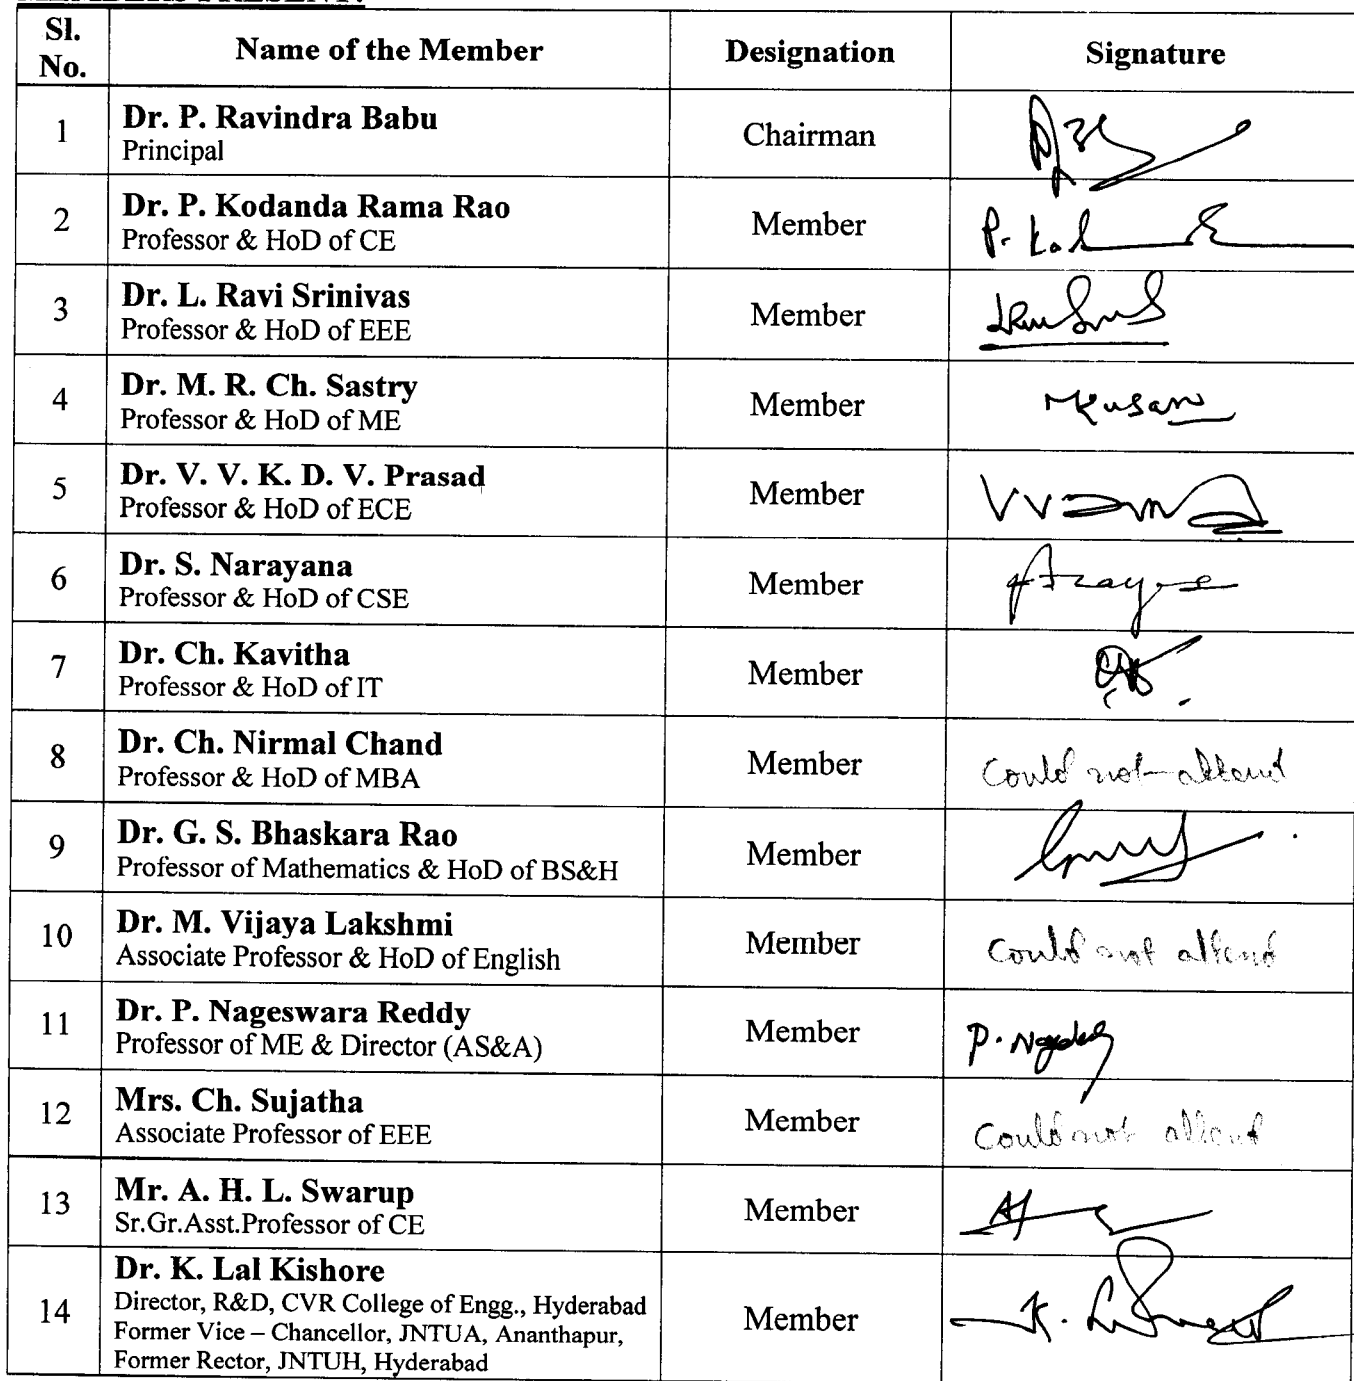 MEMBERS PRESENT:
Sl. No.
Name of the Member
Designation
Signature
1
Dr. P. Ravindra Babu
Principal
Chairman
2
Dr. P. Kodanda Rama Rao
Professor & HoD of CE
Member
3
Dr. L. Ravi Srinivas
Professor & HoD of EEE
Member
4
Dr. M. R. Ch. Sastry
Professor & HoD of ME
Member
5
Dr. V. V. K. D. V. Prasad
Professor & HoD of ECE
Member
6
Dr. S. Narayana
Professor & HoD of CSE
Member
7
Dr. Ch. Kavitha
Professor & HoD of IT
Member
8
Dr. Ch. Nirmal Chand
Professor & HoD of MBA
Member
Could not attend
9
Dr. G. S. Bhaskara Rao
Professor of Mathematics & HoD of BS&H
Member
10
Dr. M. Vijaya Lakshmi
Associate Professor & HoD of English
Member
Could not attend
11
Dr. P. Nageswara Reddy
Professor of ME & Director (AS&A)
Member
12
Mrs. Ch. Sujatha
Associate Professor of EEE
Member
Could not attend
13
Mr. A. H. L. Swarup
Sr.Gr.Asst.Professor of CE
Member
14
Dr. K. Lal Kishore
Director, R&D, CVR College of Engg., Hyderabad
Former Vice – Chancellor, JNTUA, Ananthapur,
Former Rector, JNTUH, Hyderabad
Member